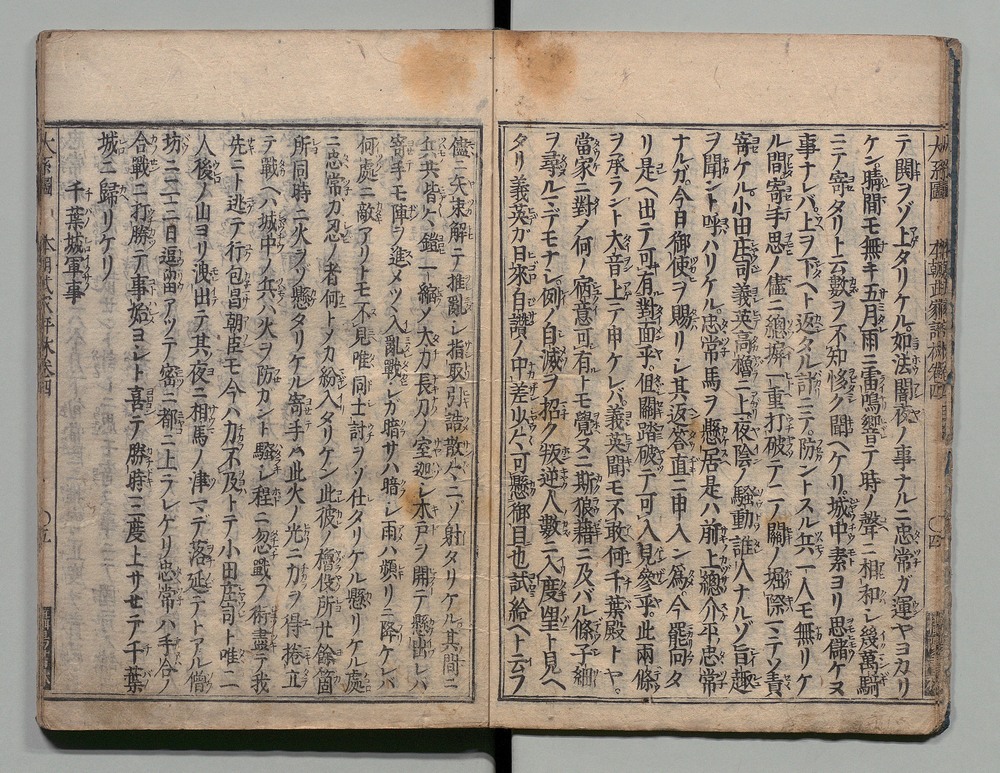 テ鬨ヲゾ上タリケル。如法闇夜ノ事ナルニ忠常ガ運ヤヨカリ
ケン晴間モ無キ五月雨ニ雷鳴響テ時ノ聲ニ相和シ幾萬騎
ニテ寄タリト云數ヲ不知夥ク聞ヘケリ。城中素ヨリ思儲ケヌ
事ナレバ上ヲ下ヘト返タル計ニテ。防ントスル兵一人モ無リケ
ル間寄手思ノ儘ニ總堀一重打破テ二ノ關ノ堀際マデソ責
寄ケル。小田庄司義英高櫓ニ上夜陰ノ騷動誰人ナルゾ旨趣
ヲ聞ント呼ハリケル。忠常馬ヲ懸居是ハ前上總介平忠常
ナルガ。今日御使ヲ賜リシ其返答直ニ申入ン爲。今罷向タ
リ是ヘ出テ可有對面乎。但關踏破テ可入見參乎。此兩條
ヲ承ラント大音上テ申ケレバ。義英聞モ不敢何千葉殿トヤ。
當家ニ對ノ何ノ宿意可有トモ覺ヌニ斯狼藉ニ及バル條子細
ヲ尋ルマデモナシ。例ノ自滅ヲ招ク叛逆人數ニ入度望ト見ヘ
タリ義英ガ日來自讃ノ中差少々可懸御目也試給ヘト云ヲ
大系圖
本朝武家評林卷四
〇四
儘ニ矢束解テ推亂シ指取引詰散々ニゾ射タリケル其間ニ
兵共皆々鎧一縮ノ大力長刀ノ室迦シ木戸ヲ開テ懸出レバ
寄手モ陣ヲ進メツヽ入亂戰シガ暗サハ暗シ雨ハ頻リニ降ケレバ
何處ニ敵アリトモ不見唯同士討ヲソ仕タリケル懸リケル處
ニ忠常カ忍ノ者何トノカ紛入タリケン此彼ノ櫓役所廿餘箇
所同時ニ火ヲソ懸タリケル寄手ハ此火ノ光ニ力ヲ得捲立
テ戰ヘハ城中ノ兵ハ火ヲ防カント騷シ程ニ忽戰フ術盡テ我
先ニト逃テ行包昌朝臣モ今ハ力不及トテ小田庄司ト唯二
人後ノ山ヨリ洩出テ其夜ニ相馬ノ津マデ落延テトアル僧
坊ニ二三日逗留アツテ密ニ都ニ上ラレケリ忠常ハ手合ノ
合戰ニ打勝テ事始ヨシト喜テ勝時三度上サセテ千葉
城ニ歸リケリ
千葉城軍事
大系圖
本朝武家評林卷四
〇五